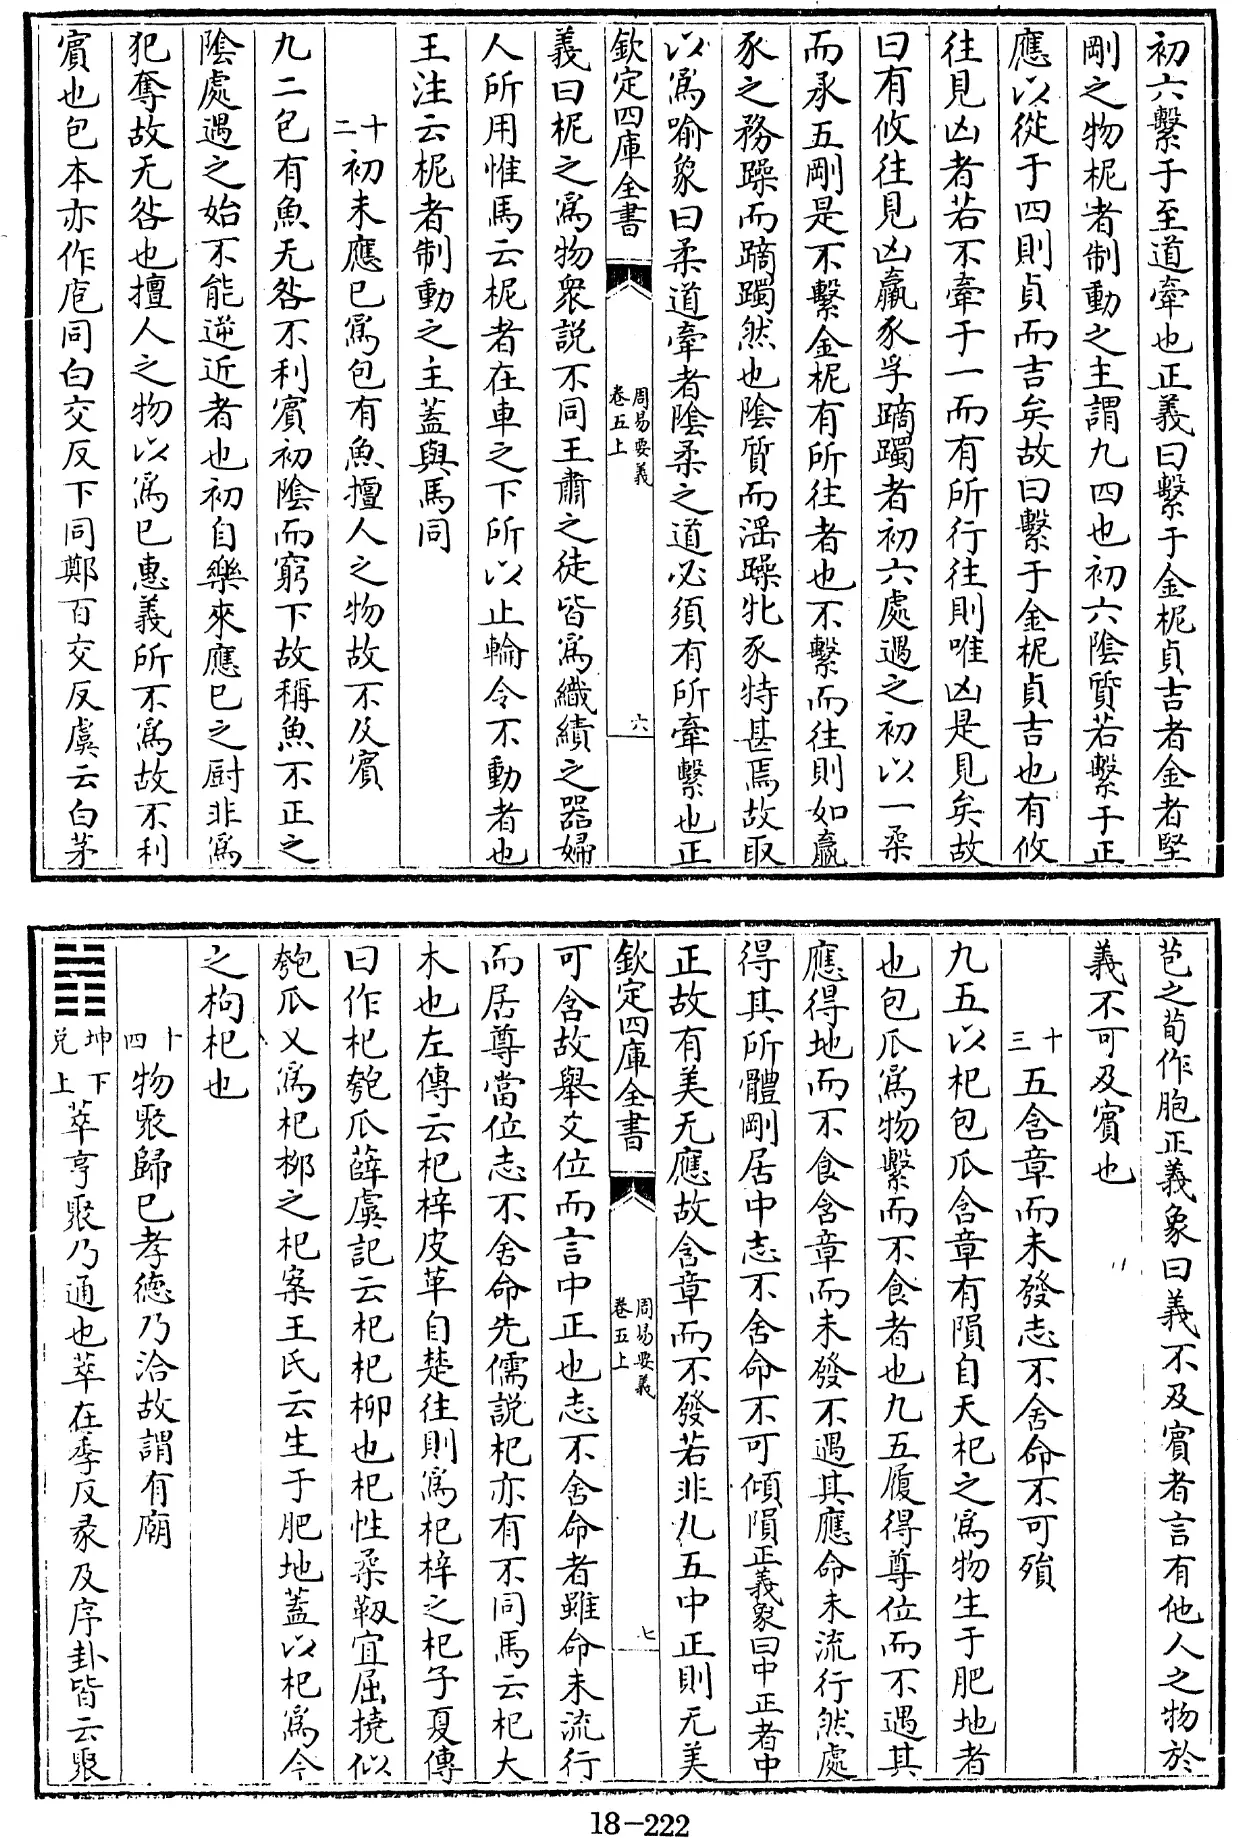 初六繫于至道牽也正義曰繫于金柅貞吉者金者堅
剛之物柅者制動之主謂九四也初六陰質若繫于正
應以從于四則貞而吉矣故曰繫于金柅貞吉也有攸
往見凶者若不牽于一而有所行往則唯凶是見矣故
曰有攸往見凶羸豕孚蹢躅者初六處遇之初以一柔
而承五剛是不繫金柅有所往者也不繫而往則如羸
豕之務躁而蹢躅然也陰質而淫躁牝豕特甚焉故取
以為喻象曰柔道牽者陰柔之道必須有所牽繫也正
欽定四庫全書
周易要義
卷五上
六
義曰柅之為物衆説不同王肅之徒皆為織績之器婦
人所用惟馬云柅者在車之下所以止輪令不動者也
王注云柅者制動之主蓋與馬同
十二初未應已為包有魚擅人之物故不及賓
九二包有魚无咎不利賓初陰而窮下故稱魚不正之
陰處遇之始不能逆近者也初自樂來應已之廚非為
犯奪故无咎也擅人之物以為已惠義所不為故不利
賓也包本亦作庖同白交反下同鄭百交反虞云白茅
苞之荀作胞正義象曰義不及賓者言有他人之物於
義不可及賓也
十三五含章而未發志不舍命不可殞
九五以杞包瓜含章有隕自天杞之為物生于肥地者
也包瓜為物繫而不食者也九五履得尊位而不遇其
應得地而不食含章而未發不遇其應命未流行然處
得其所體剛居中志不舍命不可傾隕正義象曰中正者中
正故有美无應故含章而不發若非九五中正則无美
欽定四庫全書
周易要義
卷五上
七
可含故舉爻位而言中正也志不舍命者雖命未流行
而居尊當位志不舍命先儒説杞亦有不同馬云杞大
木也左傳云杞梓皮革自楚往則為杞梓之杞子夏傳
曰作杞匏瓜薛虞記云杞杞柳也杞性柔靭宜屈撓似
匏瓜又為杞柳之杞案王氏云生于肥地蓋以杞為今
之枸杞也
十四物聚歸已孝德乃洽故謂有廟
坤下兑上萃亨聚乃通也萃在季反彖及序卦皆云聚
18-222